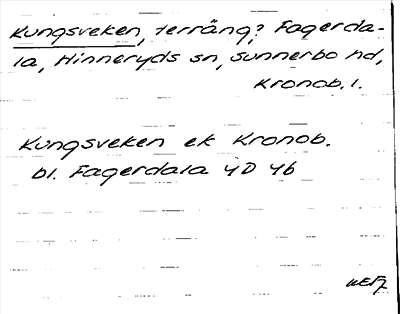 Kungsveken, terräng? Fagerda-
la, Hinneryds sn, Sunnerbo hd,
Kronob. l.
Kungsveken ek Kronob.
bl. Fagerdala 4D 4b